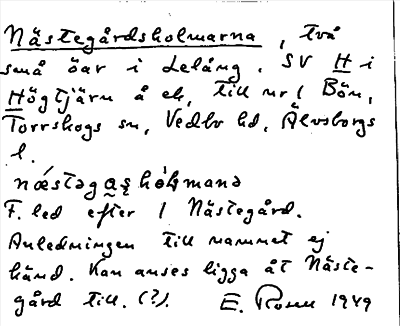 Nästegårdsholmarna, två
små öar i Lelång. SV H i
Högtjärn å ek, till nr 1 Bön,
Torrskogs sn, Vedbo hd, Älvsborgs
l.
F. led efter 1 Nästegård.
Anledningen till namnet ej
känd. Kan anses ligga åt Näste-
gård till. (?). E. Rosell 1949